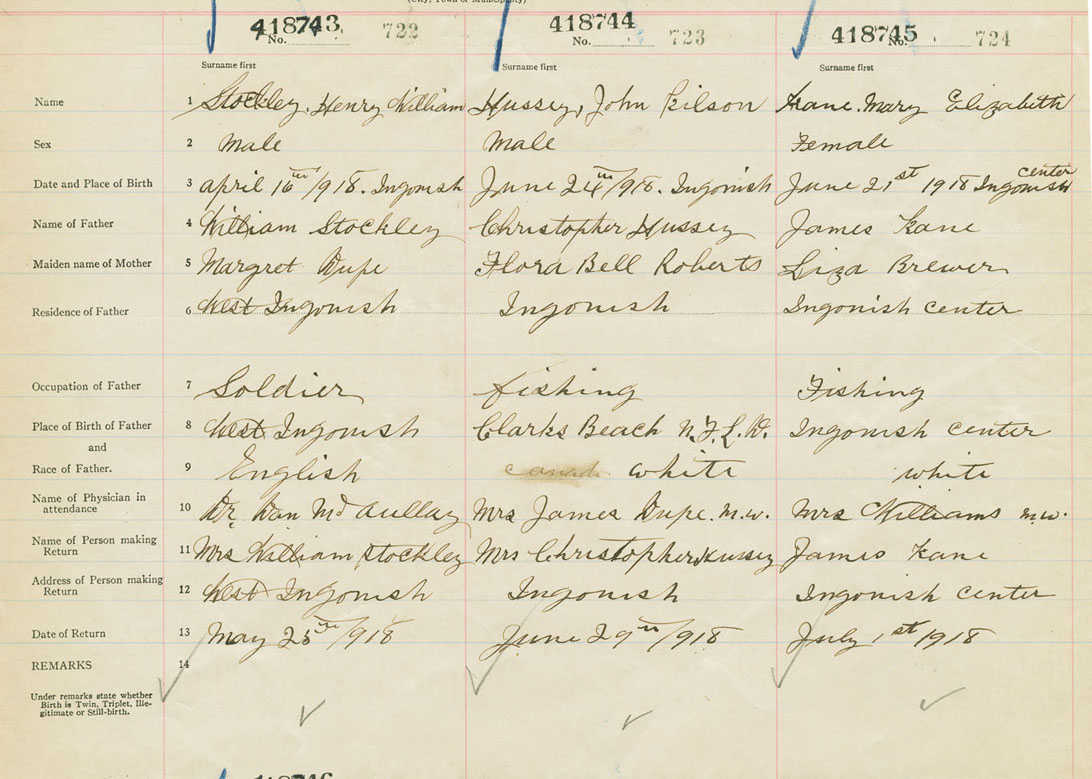 (City, Town or Municipality)
418743 418744 418745
No. 722 No. 723 No. 724
Surname first Surname first Surname first
Name 1 Stockley, Henry William Hussey, John Kane, Mary Elizabeth
Sex 2 Male Male Female
Date and Place of Birth 3 april 16th/918. Ingonish June 24th/918. Ingonish June 21st 1918 Ingonish center
Name of Father 4 William Stockley Christopher Hussey James Kane
Maiden name of Mother 5 Margret Dupe Flora Bell Roberts Liza Brewer
Residence of Father 6 West Ingonish Ingonish Ingonish center
Occupation of Father 7 Soldier fishing Fishing
Place of Birth of Father 8 West Ingonish Clarks Beach N.F.L.D. Ingonish center
and
Race of Father. 9 English white white
Name of Physician in
attendance 10 Dr. Dan Mrs James Dupe. m.w. Mrs Williams m.w.
Name of Person making
Return 11 Mrs William Stockley Mrs Christopher Hussey James Kane
Address of Person making
Return 12 West Ingonish Ingonish Ingonish center
Date of Return 13 May 25th/918 June 29th/918 July 1st 1918
REMARKS 14
Under remarks state whether
Birth is Twin, Triplet, Ille-
gitimate or Still-birth.
418746